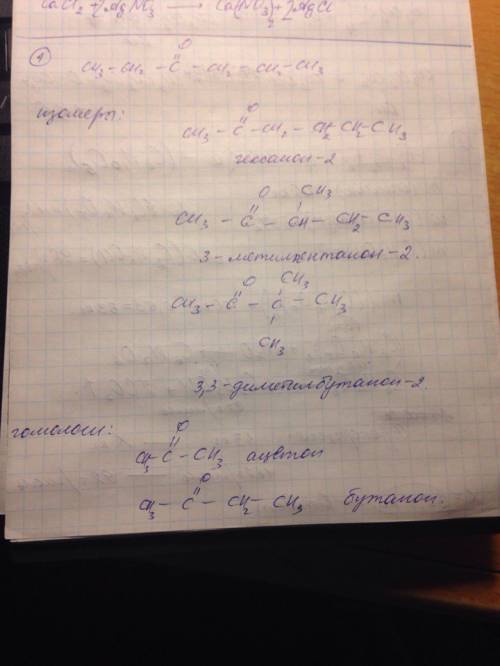 CaCl₂ + 2AgNO₃ → Ca(NO₃)₂ + 2AgCl
1
O
CH₃ - CH₂ - C - CH₂ - CH₂ - CH₃
изомеры:
O
CH₃ - C - CH₂ - CH₂ CH₂ - CH₃
гексанон-2
O CH₃
CH₃ - C - CH - CH₂ - CH₃
3-метилпентанон-2.
O CH₃
CH₃ - C - C - CH₃
CH₃
3,3-диметилбутанон-2.
гомологи:
O
CH₃ - C - CH₃ ацетон
O
CH₃ - C - CH₂ - CH₃ бутанон.